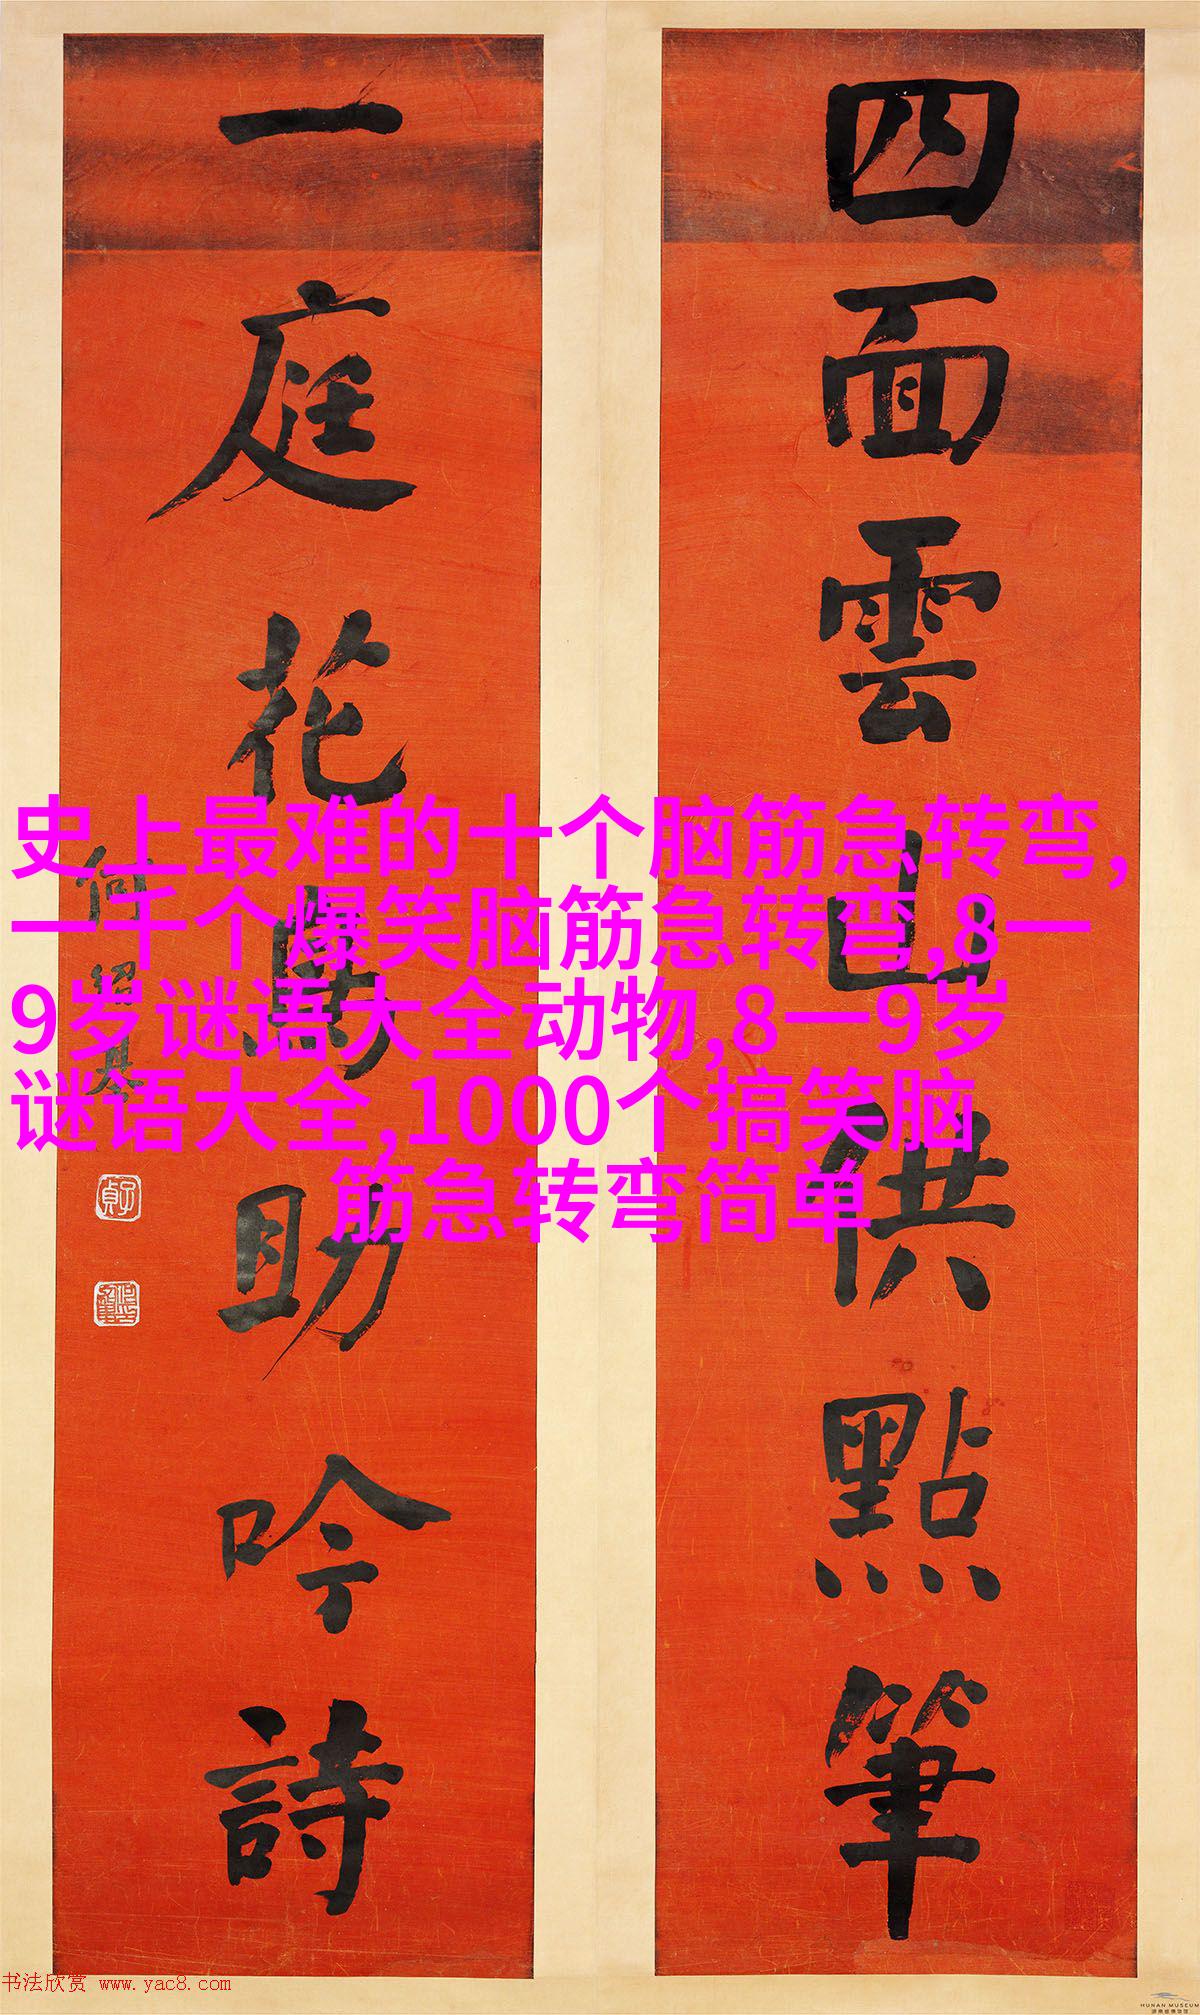 四面雲山供點筆
一庭花鳥助吟詩
何紹基
史上最难的十个脑筋急转弯,
一千个爆笑脑筋急转弯,8一
9岁谜语大全动物,8一9岁
谜语大全,1000个搞笑脑
筋急转弯简单
书法欣赏 www.yac8.com
HUNAN MUSEUM